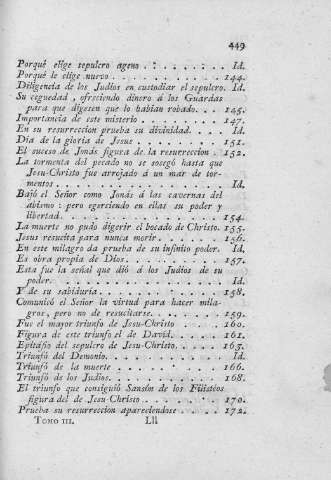 449
Porqué elige sepulcro ageno . . . . . . . . Id.
Porqué le elige nuevo . . . . . . . . . . 144.
Deligencia de los Judíos en custodiar el sepulcro. Id.
Su ceguedad, ofreciendo dinero á los Guardas
para que digesen que lo habian robado. . . 145.
Importancia de este misterio . . . . . . . 147.
En su resurreccion prueba su divinidad. . . . Id.
Dia de la gloria de Jesus . . . . . . . . . 151.
El suceso de Jonás figura de la resurreccion . . 152.
La tormenta del pecado no se sosegó hasta que
Jesu-Christo fue arrojado á un mar de tor-
mentos . . . . . . . . . . . . . . . Id.
Bajó el Señor como Jonás á las cavernas del
abismo : pero egerciendo en ellas su poder y
libertad. . . . . . . . . . . . . . . 154.
La muerte no pudo digerir el bocado de Christo. 155.
Jesus resucita para nunca morir. . . . . . . 156.
En este milagro da prueba de su infinito poder. Id.
Es obra propia de Dios. . . . . . . . . . 157.
Esta fue la señal que dió á los Judios de su
poder. . . . . . . . . . . . . . . . Id.
Y de su sabiduria. . . . . . . . . . . . 158.
Comunicó el Señor la virtud para hacer mila-
gros, pero no de resucitarse. . . . . . . 159.
Fue el mayor triunfo de Jesu-Christo . . . . 160.
Figura de este triunfo el de David. . . . . . 161.
Epitafio del sepulcro de Jesu-Christo. . . . . 165.
Triunfó del Demonio. . . . . . . . . . . Id.
Triunfó de la muerte . . . . . . . . . . 166.
Triunfó de los Judíos. . . . . . . . . . . 168.
El triunfo que consiguió Sansón de los Filisteos
figura del de Jesu-Christo . . . . . . . . 170.
Prueba su resurreccion apareciendose . . . . 172.
TOMO III. Lll